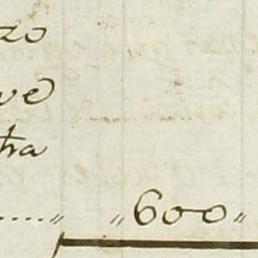 zo
ve
tra
....„ „600„